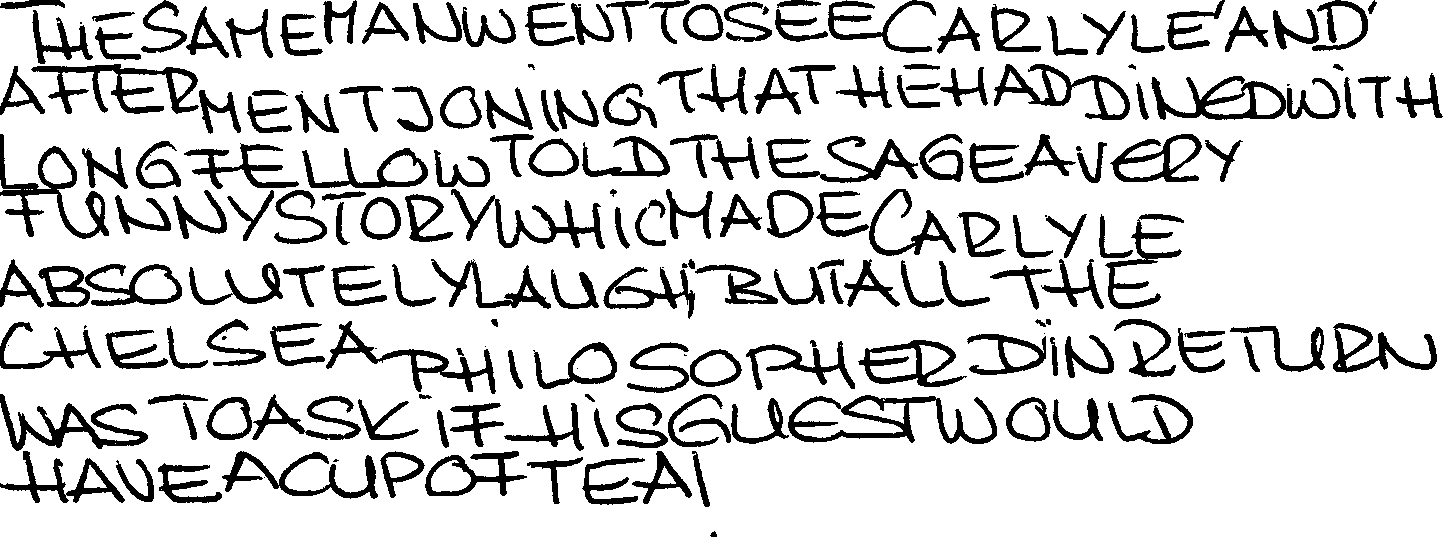 THE SAME MAN WENT TO SEE CARLYLE' AND'
AFTER MENTJONING THAT HE HAD DINED WITH
LONGFELLOW TOLD THE SAGE A VERY
FUNNY STORY WHIC MADE CARLYLE
ABSOLUTELY LAUGH; BUT ALL THE
CHELSEA PHILOSOPHER D IN RETURN
WAS TO ASK IF HIS GUEST WOULD
HAVE A CUP OF TEA!